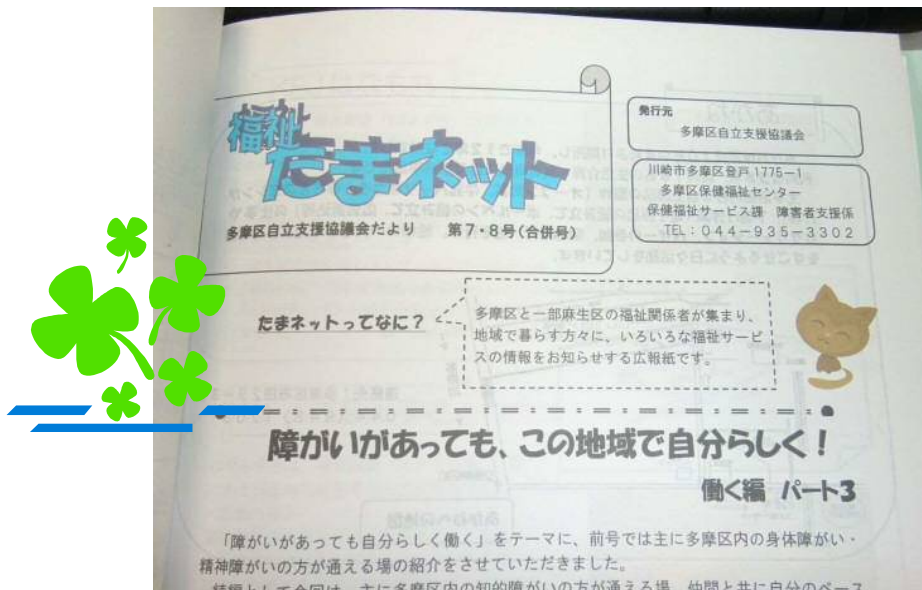 福祉
たまネット
多摩区自立支援協議会だより 第7・8号(合併号)
発行元
多摩区自立支援協議会
川崎市多摩区登戸1775-1
多摩区保健福祉センター
保健福祉サービス課 障害者支援係
TEL:044-935-3302
たまネットってなに?
多摩区と一部麻生区の福祉関係者が集まり、
地域で暮らす方々に、いろいろな福祉サービ
スの情報をお知らせする広報紙です。
障がいがあっても、この地域で自分らしく!
働く編 パート3
「障がいがあっても自分らしく働く」をテーマに、前号では主に多摩区内の身体障がい・
精神障がいの方が通える場の紹介をさせていただきました。
続編として今回は、主に多摩区内の知的障がいの方が通える場、仲間と共に自分のペース